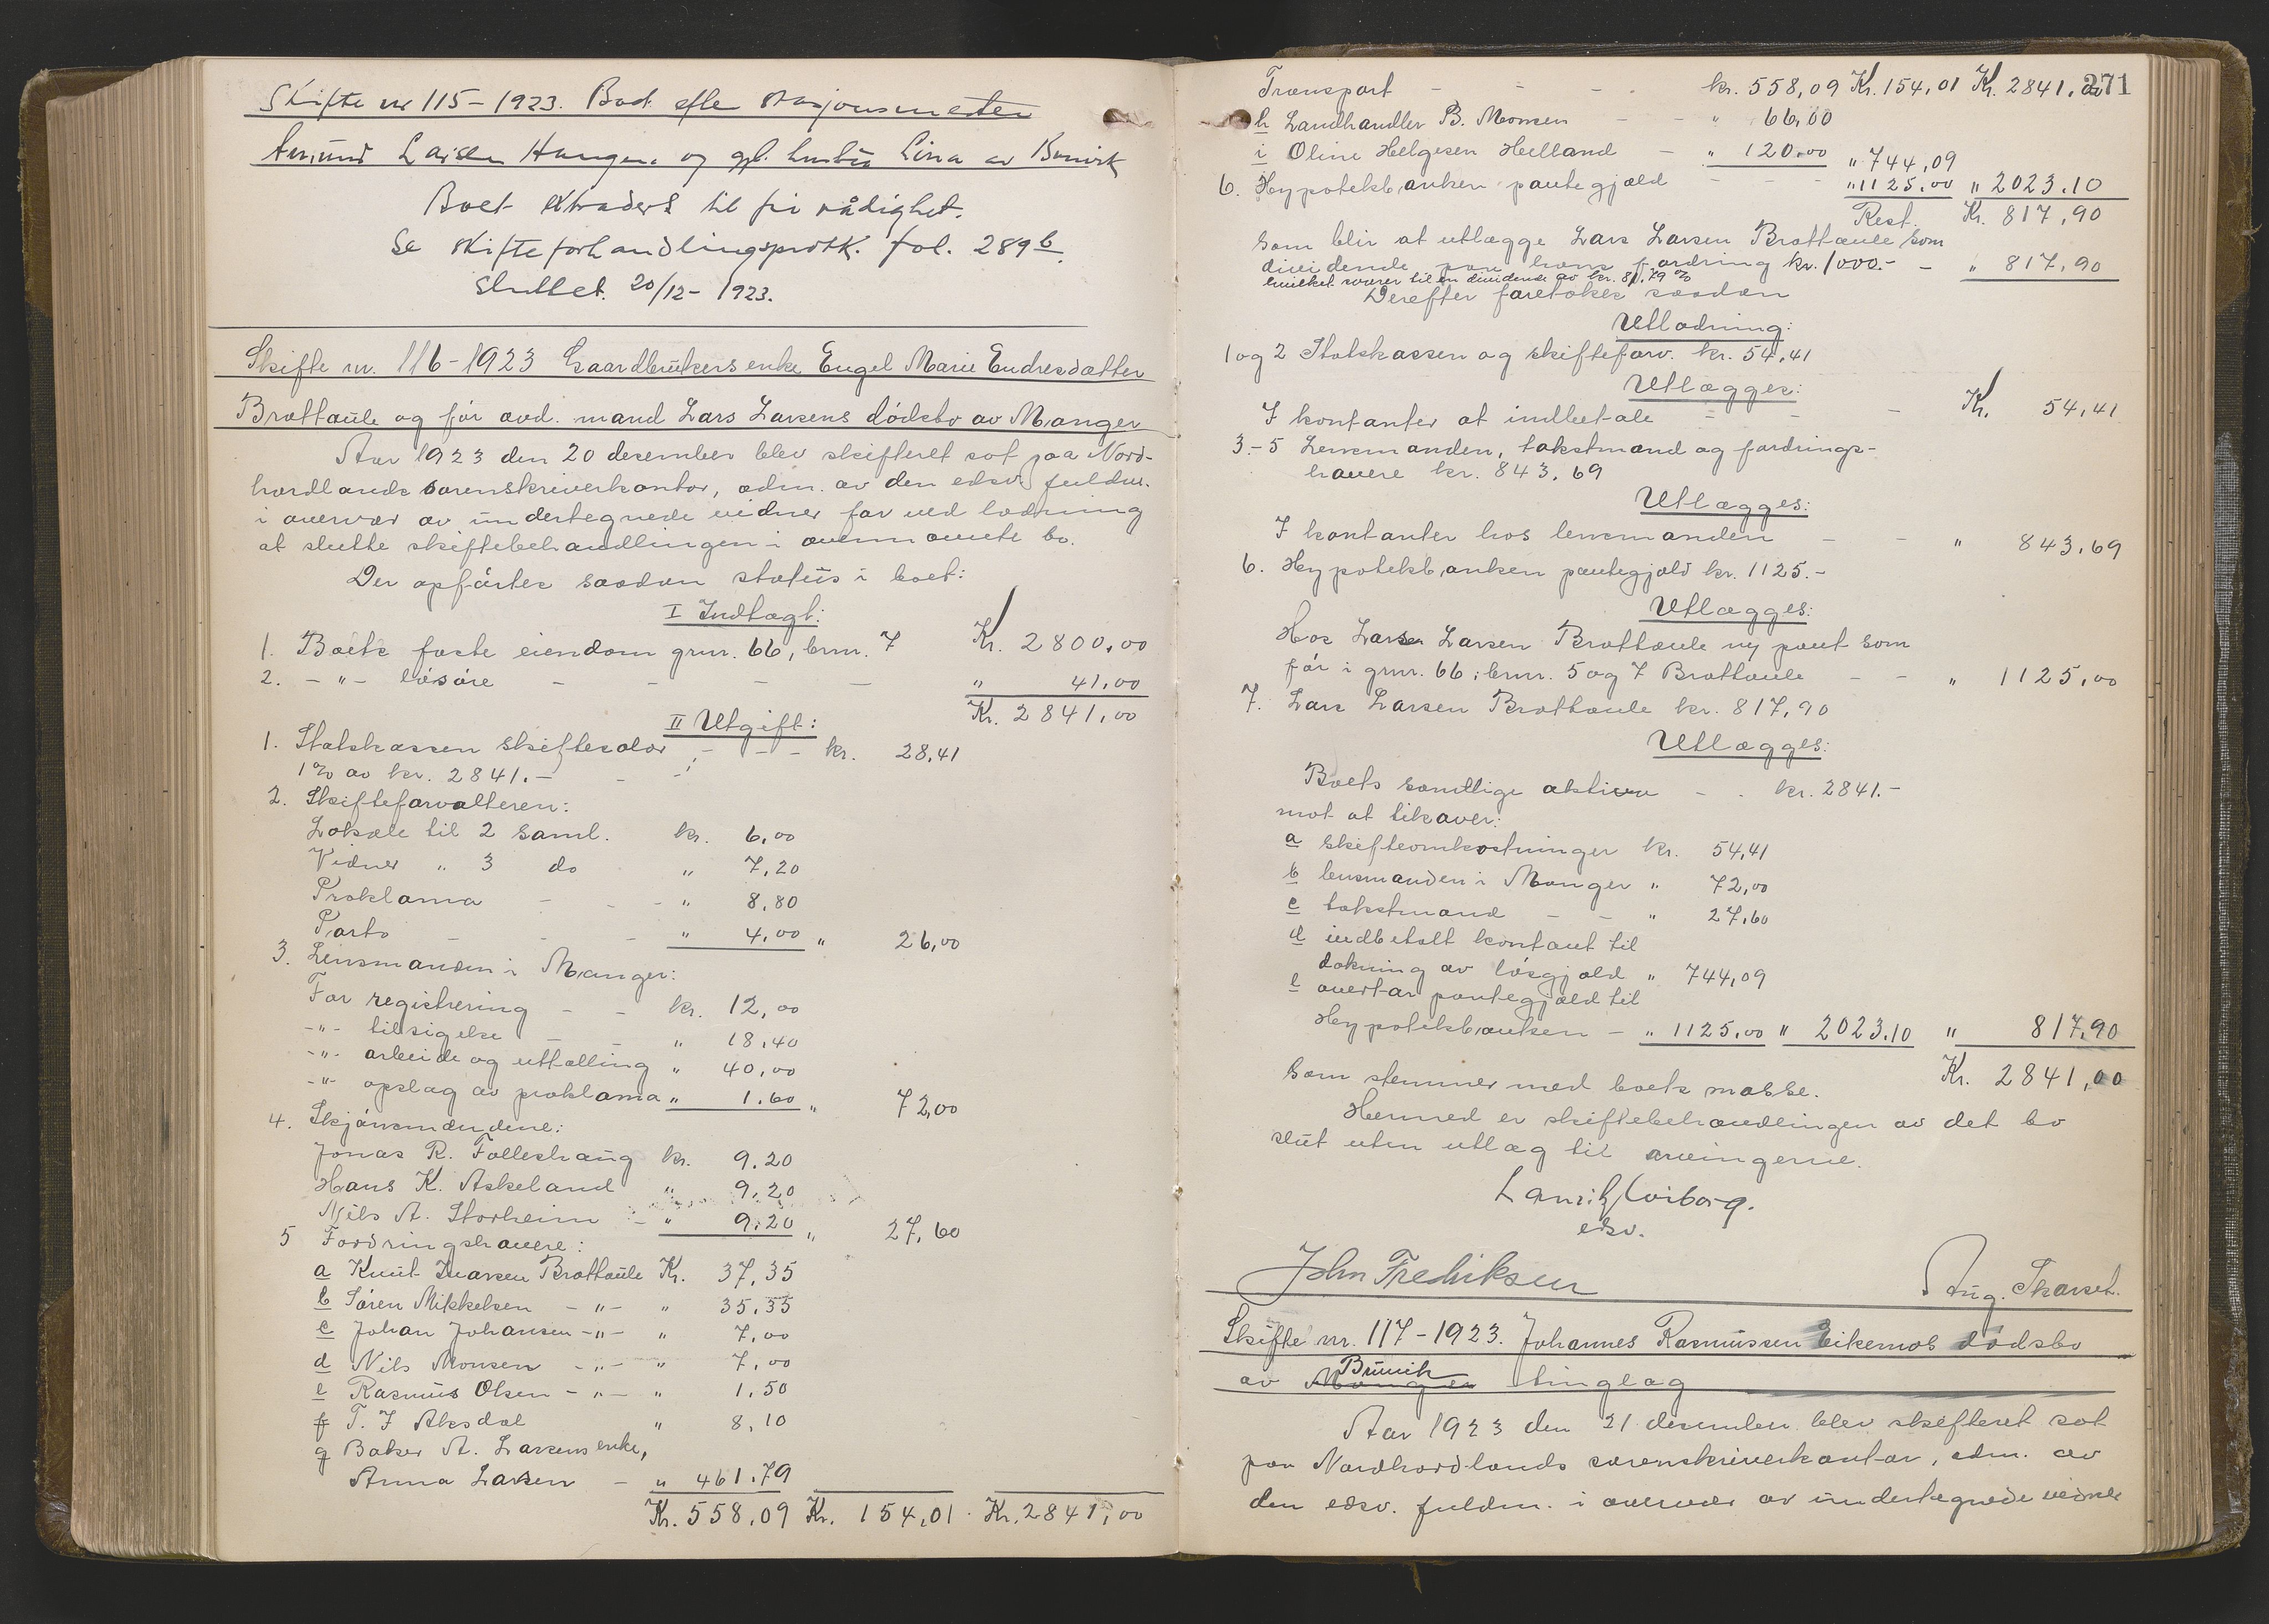 Skifte nr 115 - 1923. Boet efter stasjonsmester
Amund Larsen Haugen og gjl. hustru Lina av Bruvik
Boet extraderts til fri rådighet.
Se skifteforhandlingsprotk. fol. 289 b.
Sluttet. 20/12 - 1923.
Skifte nr. 116 - 1923 Gaardbrukers enke Engel Marie Endresdatter
Brattaule og før avd. mand Lars Larsens dødsbo av Manger
Aar 1923 den 20 desember blev skifteret sat paa Nord-
hordlands sorenskriverkontor, adm. av den edsv. fuldm.
i overvær av undertegnede vidner for ved lodning
at slutte skiftebehandlingen i ovennævnte bo.
Der opførtes saadan status i boet:
I Indtægt:
1. Boets faste eiendom grnr. 66, brnr. 7 Kr. 2800,00
2. - " - løsøre - - - - " 41,00
Kr. 2841,00
II Utgift:
1. Statskassen skiftesalær, - - - kr. 28,41
1 % av kr. 2841.- - -
2. Skifteforvalteren:
Lokale til 2 saml. kr. 6,00
Vidner " 3 do " 7,20
Proklama - - - " 8,80
Porto - - - " 4,00 " 26,00
3. Lensmanden i Manger:
For registrering - - kr. 12,00
- " - tilsigelse - - " 18,40
- " - arbeide og uttælling " 40,00
- " - opslag av proklama " 1.60 " 72,00
4. Skjønsmændene:
Jonas R. Følleshaug kr. 9.20
Hans K. Askeland " 9,20
Nils A. Storheim - " 9,20 " 27,60
5 Fordringshavere:
a Knut Ivarsen Brattaule Kr. 37,35
b Søren Mikkelsen - " - " 35,35
c Johan Johansen - " - " 7,00
d Nils Monsen - " - " 7,00
e Rasmus Olsen - " - " 1,50
f T. J Aksdal " 8,10
g Baker A. Larsens enke,
Anna Larsen - " 461.79
Kr. 558,09 Kr. 154,01. Kr. 2841,00
271
Transport - - - kr. 558,09 Kr. 154,01 Kr. 2841,00
h Landhandler B. Monsen - - " 66,00
i Oline Helgesen Helland - " 120,00 " 744,09
6. Hypotekbanken pantegjæld - - - " 1125,00 " 2023.10
Rest. Kr. 817,90
som blir at utlægge Lars Larsen Brattaule som
dividende paa hans fordring kr. 1000.- - " 817,90
hvilket svarer til en dividende av kr. 81,79 %
Derefter foretokes saadan
Utlodning:
1 og 2 Statskassen og skifteforv. kr. 54,41
Utlægges:
I kontanter at indbetale - - - Kr. 54,41
3-5 Lensmanden, takstmænd og fordrings-
havere kr. 843,69
Utlægges:
I kontanter hos lensmanden - - " 843,69
6. Hypotekbanken pantegjæld kr. 1125.-
Utlægges:
Hos Lars Larsen Brattaule ny pant som
før i grnr. 66, brnr. 5 og 7 Brattaule - - " 1125,00
7. Lars Larsen Brattaule kr. 817,90
Utlægges:
Boets samtlige aktiva - - kr. 2841.-
mot at tilsvarer:
a skifteomkostninger kr. 54,41
b lensmanden i Manger " 72,00
c takstmænd - - " 27,60
d indbetalt kontant til
dækning av løsgjæld " 744,09
e overtar pantegjæld til
Hypotekbanken - " 1125,00 " 2023.10 " 817,90
Som stemmer med boets masse. Kr. 2841,00
Hermed er skiftebehandlingen av det bo
slut uten utlæg til arvingerne.
Lauritz Wiborg.
edsv.
John Fredriksen
Aug. Skarset.
Skifte nr. 117 - 1923. Johannes Rasmussen Eikemos dødsbo
Bruvik
av Manger tinglag
Aar 1923 den 21 desember blev skifteret sat
paa Nordhordlands sorenskriverkontor, adm. av
den edsv. fuldm. i overvær av undertegnede vidner